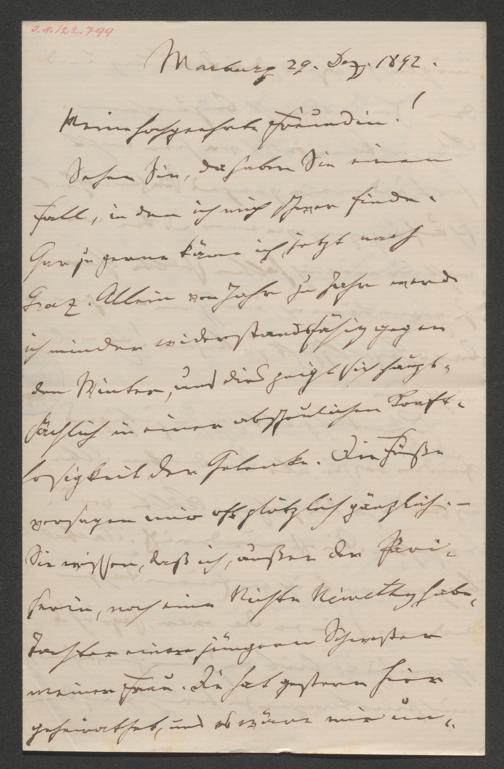 J.N. 122.799
Marburg 29. Dez. 1892.
Meine hochgeehrte Freundin!
Sehen Sie, da haben Sie einen
Fall, in dem ich mich schwer finde.
Gar zu gerne käme ich jetzt nach
Graz. Allein von Jahr zu Jahr werde
ich minder widerstandsfähig gegen
den Winter, und dies zeigt sich haupt-
sächlich in einer abscheulichen Kraft-
losigkeit der Gelenke. Die Füße
versagen mir oft plötzlich gänzlich. —
Sie wissen, daß ich, außer der Pari-
serin, noch eine Nichte Némethy habe,
Tochter einer jüngern Schwester
meiner Frau. Die hat gestern hier
geheirathet, und es wäre mir un-